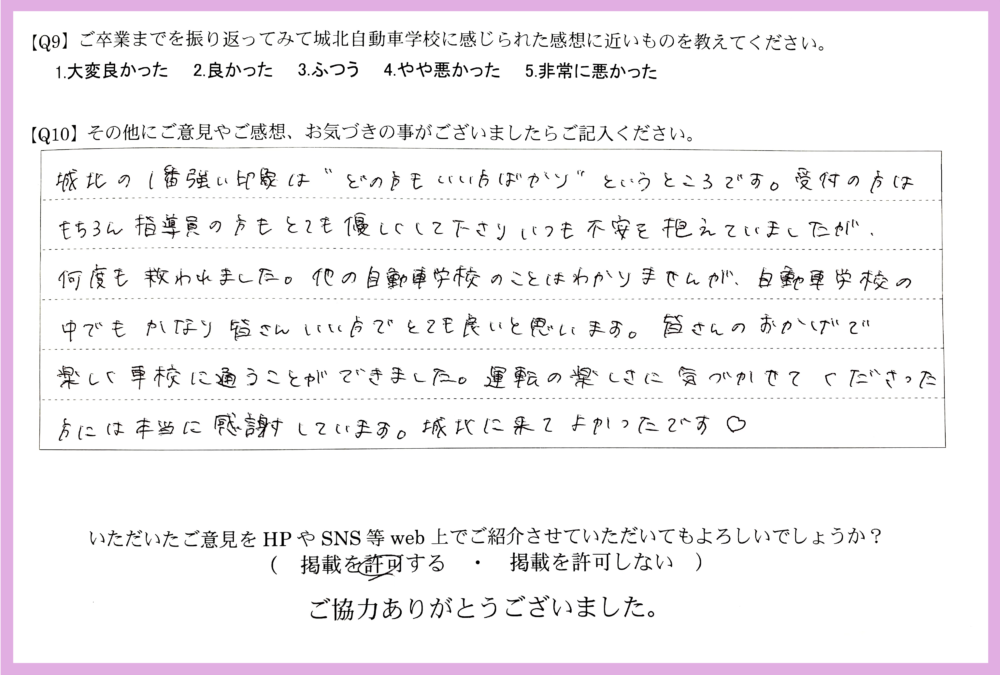 【Q9】ご卒業までを振り返ってみて城北自動車学校に感じられた感想に近いものを教えてください。
1.大変良かった 2.良かった 3.ふつう 4.やや悪かった 5.非常に悪かった
【Q10】その他にご意見やご感想、お気づきの事がございましたらご記入ください。
城北の1番強い印象は“どの方もいい方ばかり”というところです。受付の方は
もちろん指導員の方もとても優しくして下さりいつも不安を抱えていましたが、
何度も救われました。他の自動車学校のことはわかりませんが、自動車学校の
中でもかなり皆さんいい方でとても良いと思います。皆さんのおかげで
楽しく車校に通うことができました。運転の楽しさに気づかせてくださった
方には本当に感謝しています。城北に来てよかったです♡
いただいたご意見をHPやSNS等web上でご紹介させていただいてもよろしいでしょうか？
（ 掲載を許可する ・ 掲載を許可しない ）
ご協力ありがとうございました。